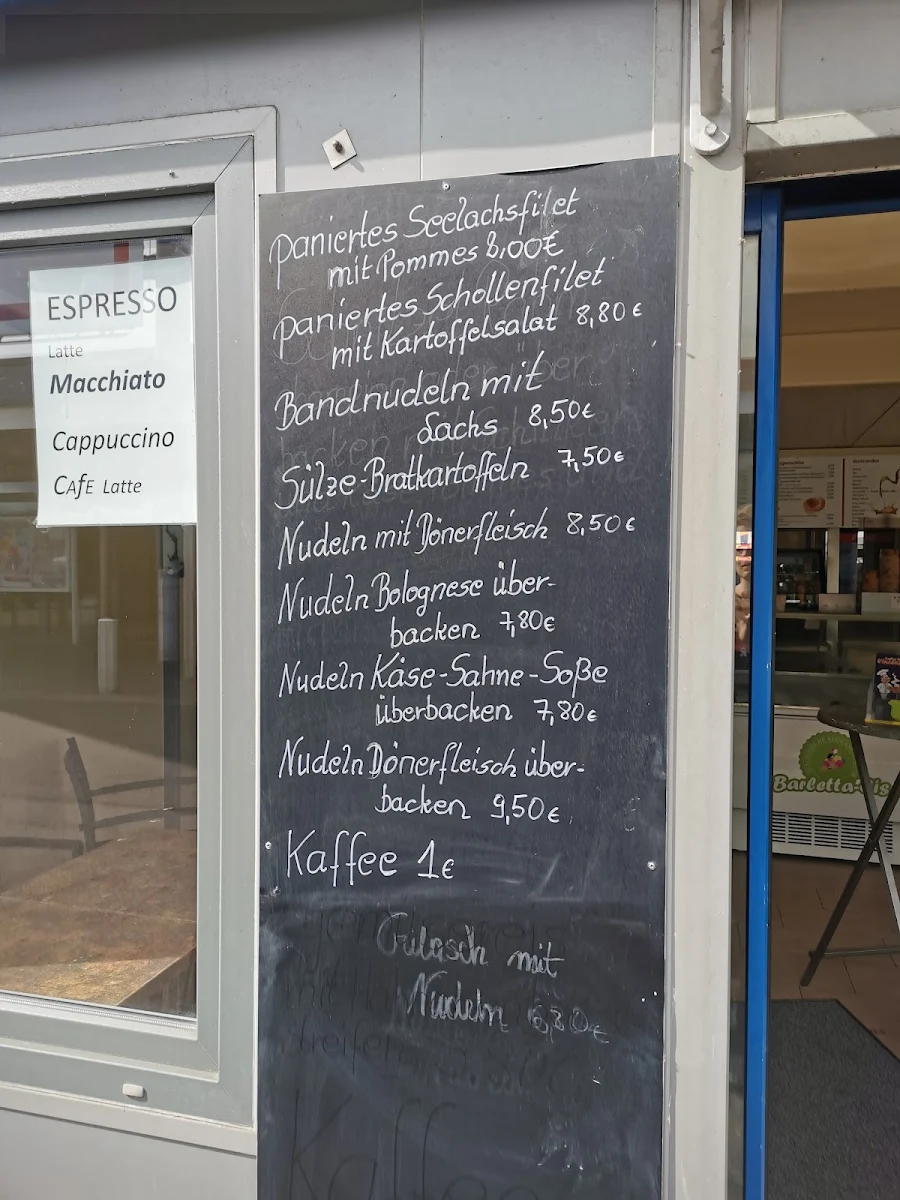 ESPRESSO
Latte
Macchiato
Cappuccino
CAfE Latte
paniertes Seelachsfilet
mit Pommes 8,00€
paniertes Schollenfilet
mit Kartoffelsalat 8,80€
Bandnudeln mit
Lachs 8,50€
Sülze-Bratkartoffeln 7,50€
Nudeln mit Dönerfleisch 8,50€
Nudeln Bolognese über-
backen 7,80€
Nudeln Käse-Sahne-Soße
überbacken 7,80€
Nudeln Dönerfleisch über-
backen 9,50€
Kaffee 1€
Gulasch mit
Nudeln 6,80€
Kaffee